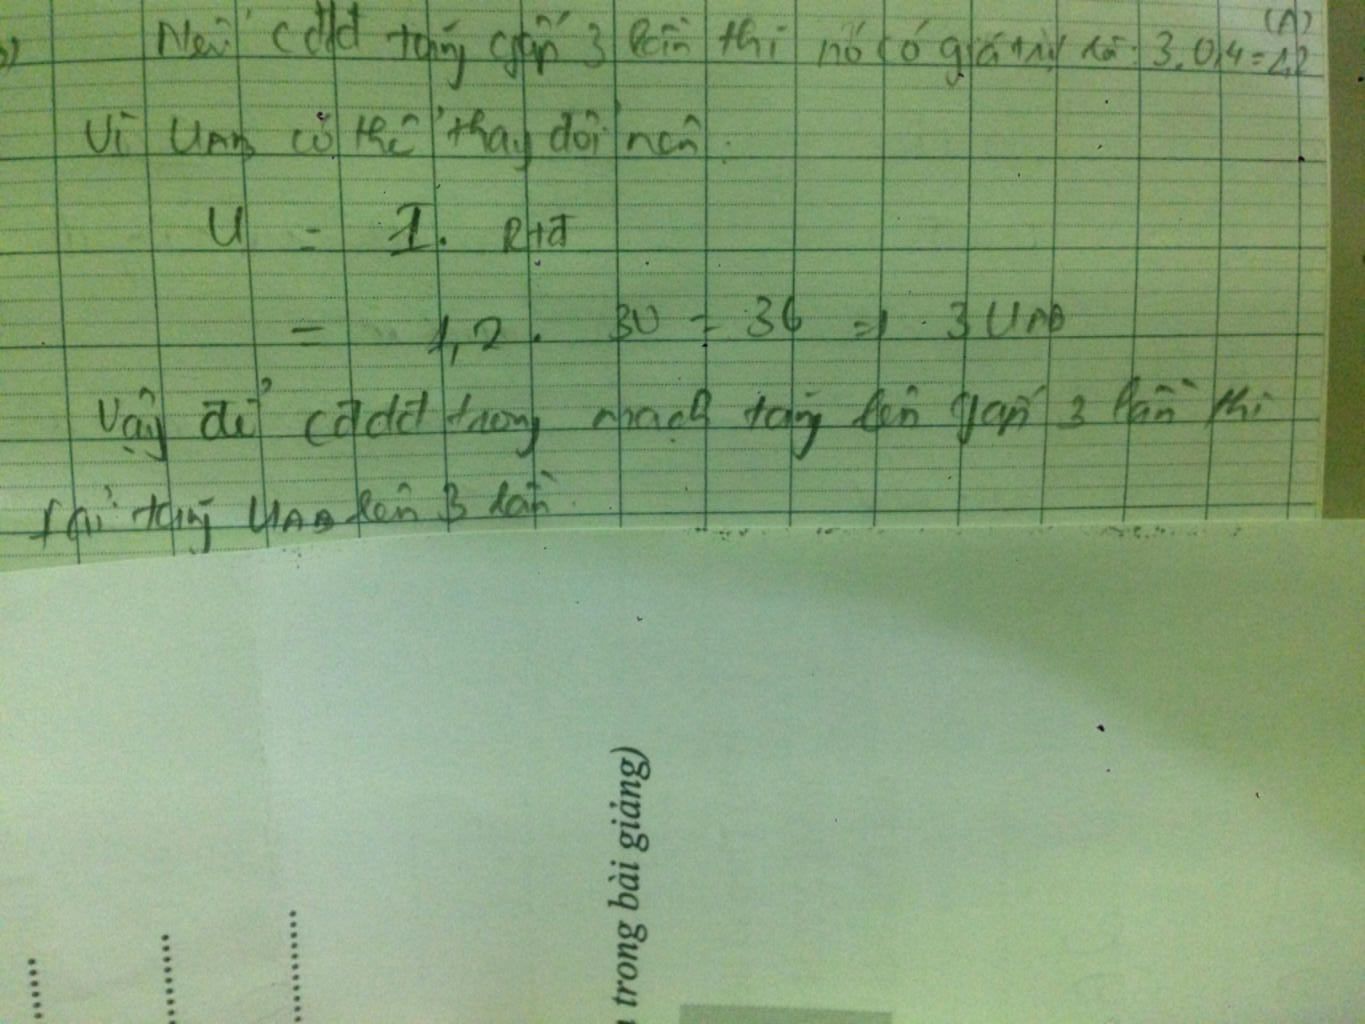 b) Nếu cđdđ tăng gấp 3 lần thì nó có giá trị là: 3.0,4 = 1,2 (A)
Vì UAB có thể thay đổi nên.
U = I. Rtđ
= 1,2 . 30 = 36 => 3 UAB
Vậy để cđdđ trong mạch tăng lên gấp 3 lần thì
tăng UAB lên 3 lần.
trong bài giảng)